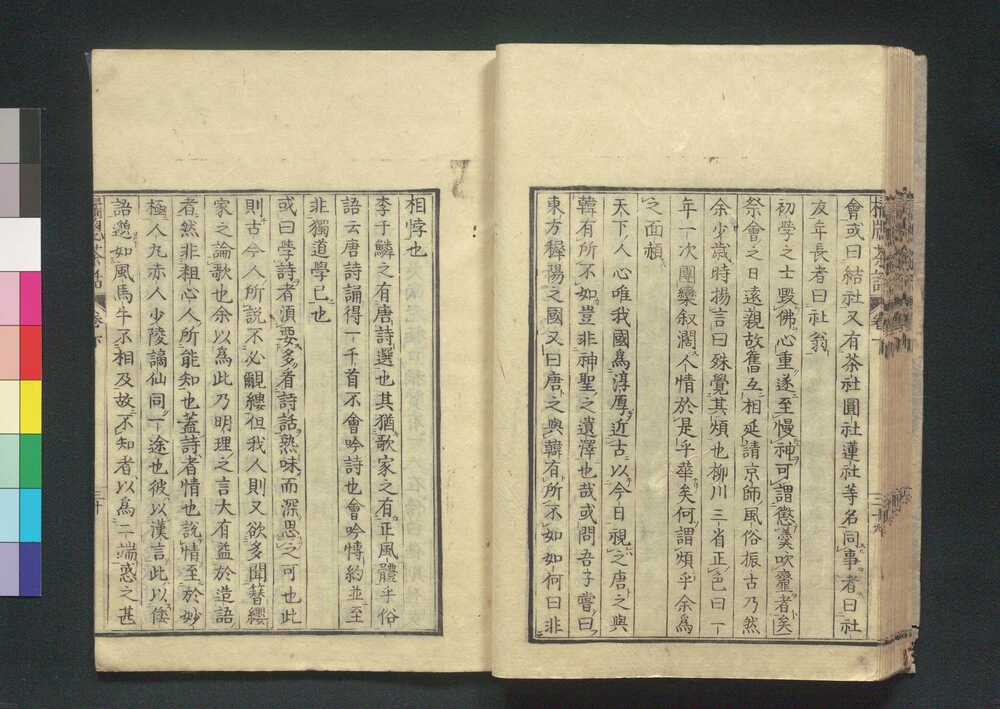 會或曰結社又有茶社圓社蓮社等名同事者曰社
友年長者曰社翁
初學之士毀佛心重遂至慢神可謂懲羹吹韲者矣
祭會之日遠親故舊互相延請京師風俗振古乃然
余少歲時揚言曰殊覺其煩也柳川三省正色曰一
年一次團欒叙濶人情於是乎華矣何謂煩乎余爲
之面頳
天下人心唯我國爲淳厚近古以今日視之唐之與
韓有所不如豈非神聖之遺澤也哉或問吾子嘗曰
東方穉陽之國又曰唐之與韓有所不如如何曰非
相悖也
李于鱗之有唐詩選也其猶歌家之有正風體乎俗
語云唐詩誦得一千首不會吟詩也會吟慱約並至
非獨道學已也
或曰學詩者湏要多看詩話熟味而深思之可也此
則古今人所說不必覼縷但我人則又欲多聞簪纓
家之論歌也余以爲此乃明理之言大有益於造語
者然非粗心人所能知也蓋詩者情也說情至於妙
極人九赤人少陵謫仙同一途也彼以漢言此以倭
語逈如風馬牛不相及故不知者以爲二端惑之甚